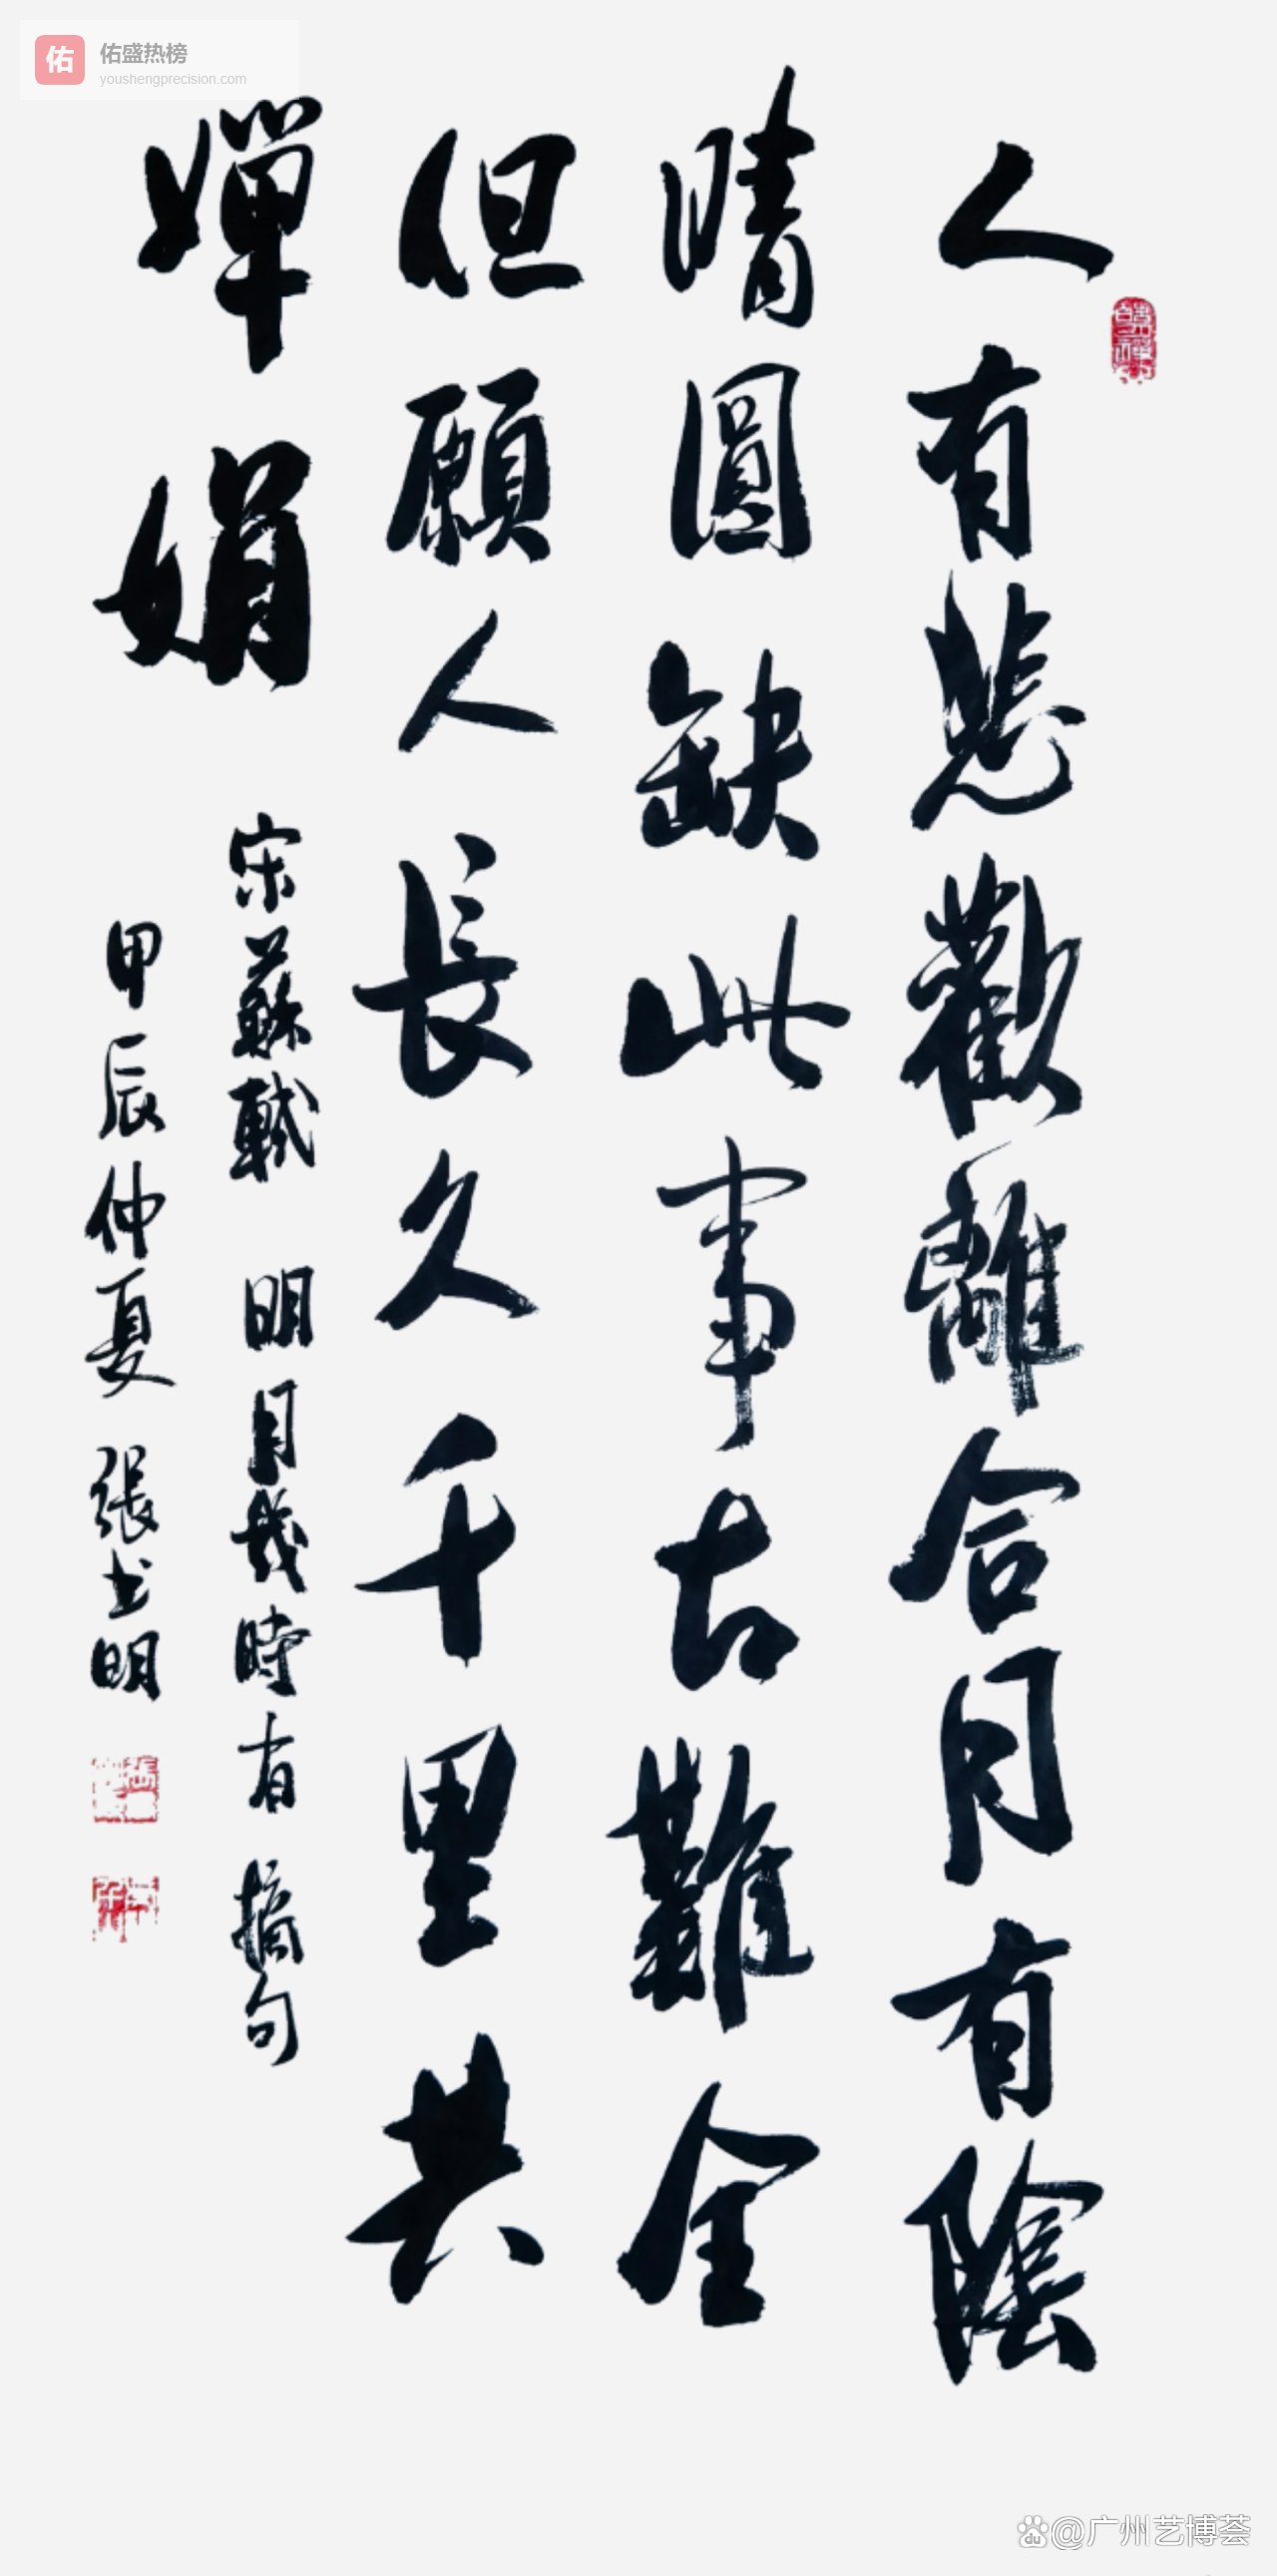 人有悲歡離合月有陰
晴圓缺此事古難全
但願人長久千里共
嬋娟
宋蘇軾 明月幾時有 摘句
甲辰仲夏 張书明
佑
佑盛热榜
youshengprecision.com
du
@广州艺博荟